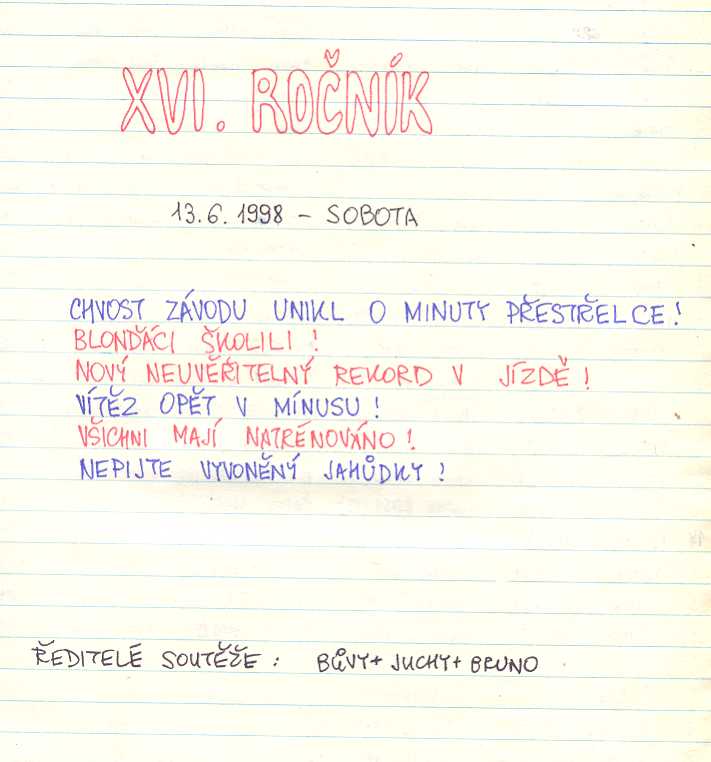 XVI. ROČNÍK
13.6.1998 - SOBOTA
CHVOST ZÁVODU UNIKL O MINUTY PŘESTŘELCE!
BLONĎÁCI ŠKOLILI!
NOVÝ NEUVĚŘITELNÝ REKORD V JÍZDĚ!
VÍTĚZ OPĚT V MÍNUSU!
VŠICHNI MAJÍ NATRÉNOVÁNO!
NEPIJTE VYVONĚNÝ JAHŮDKY!
ŘEDITELÉ SOUTĚŽE: BŮVY+JUCHY+BRUNO